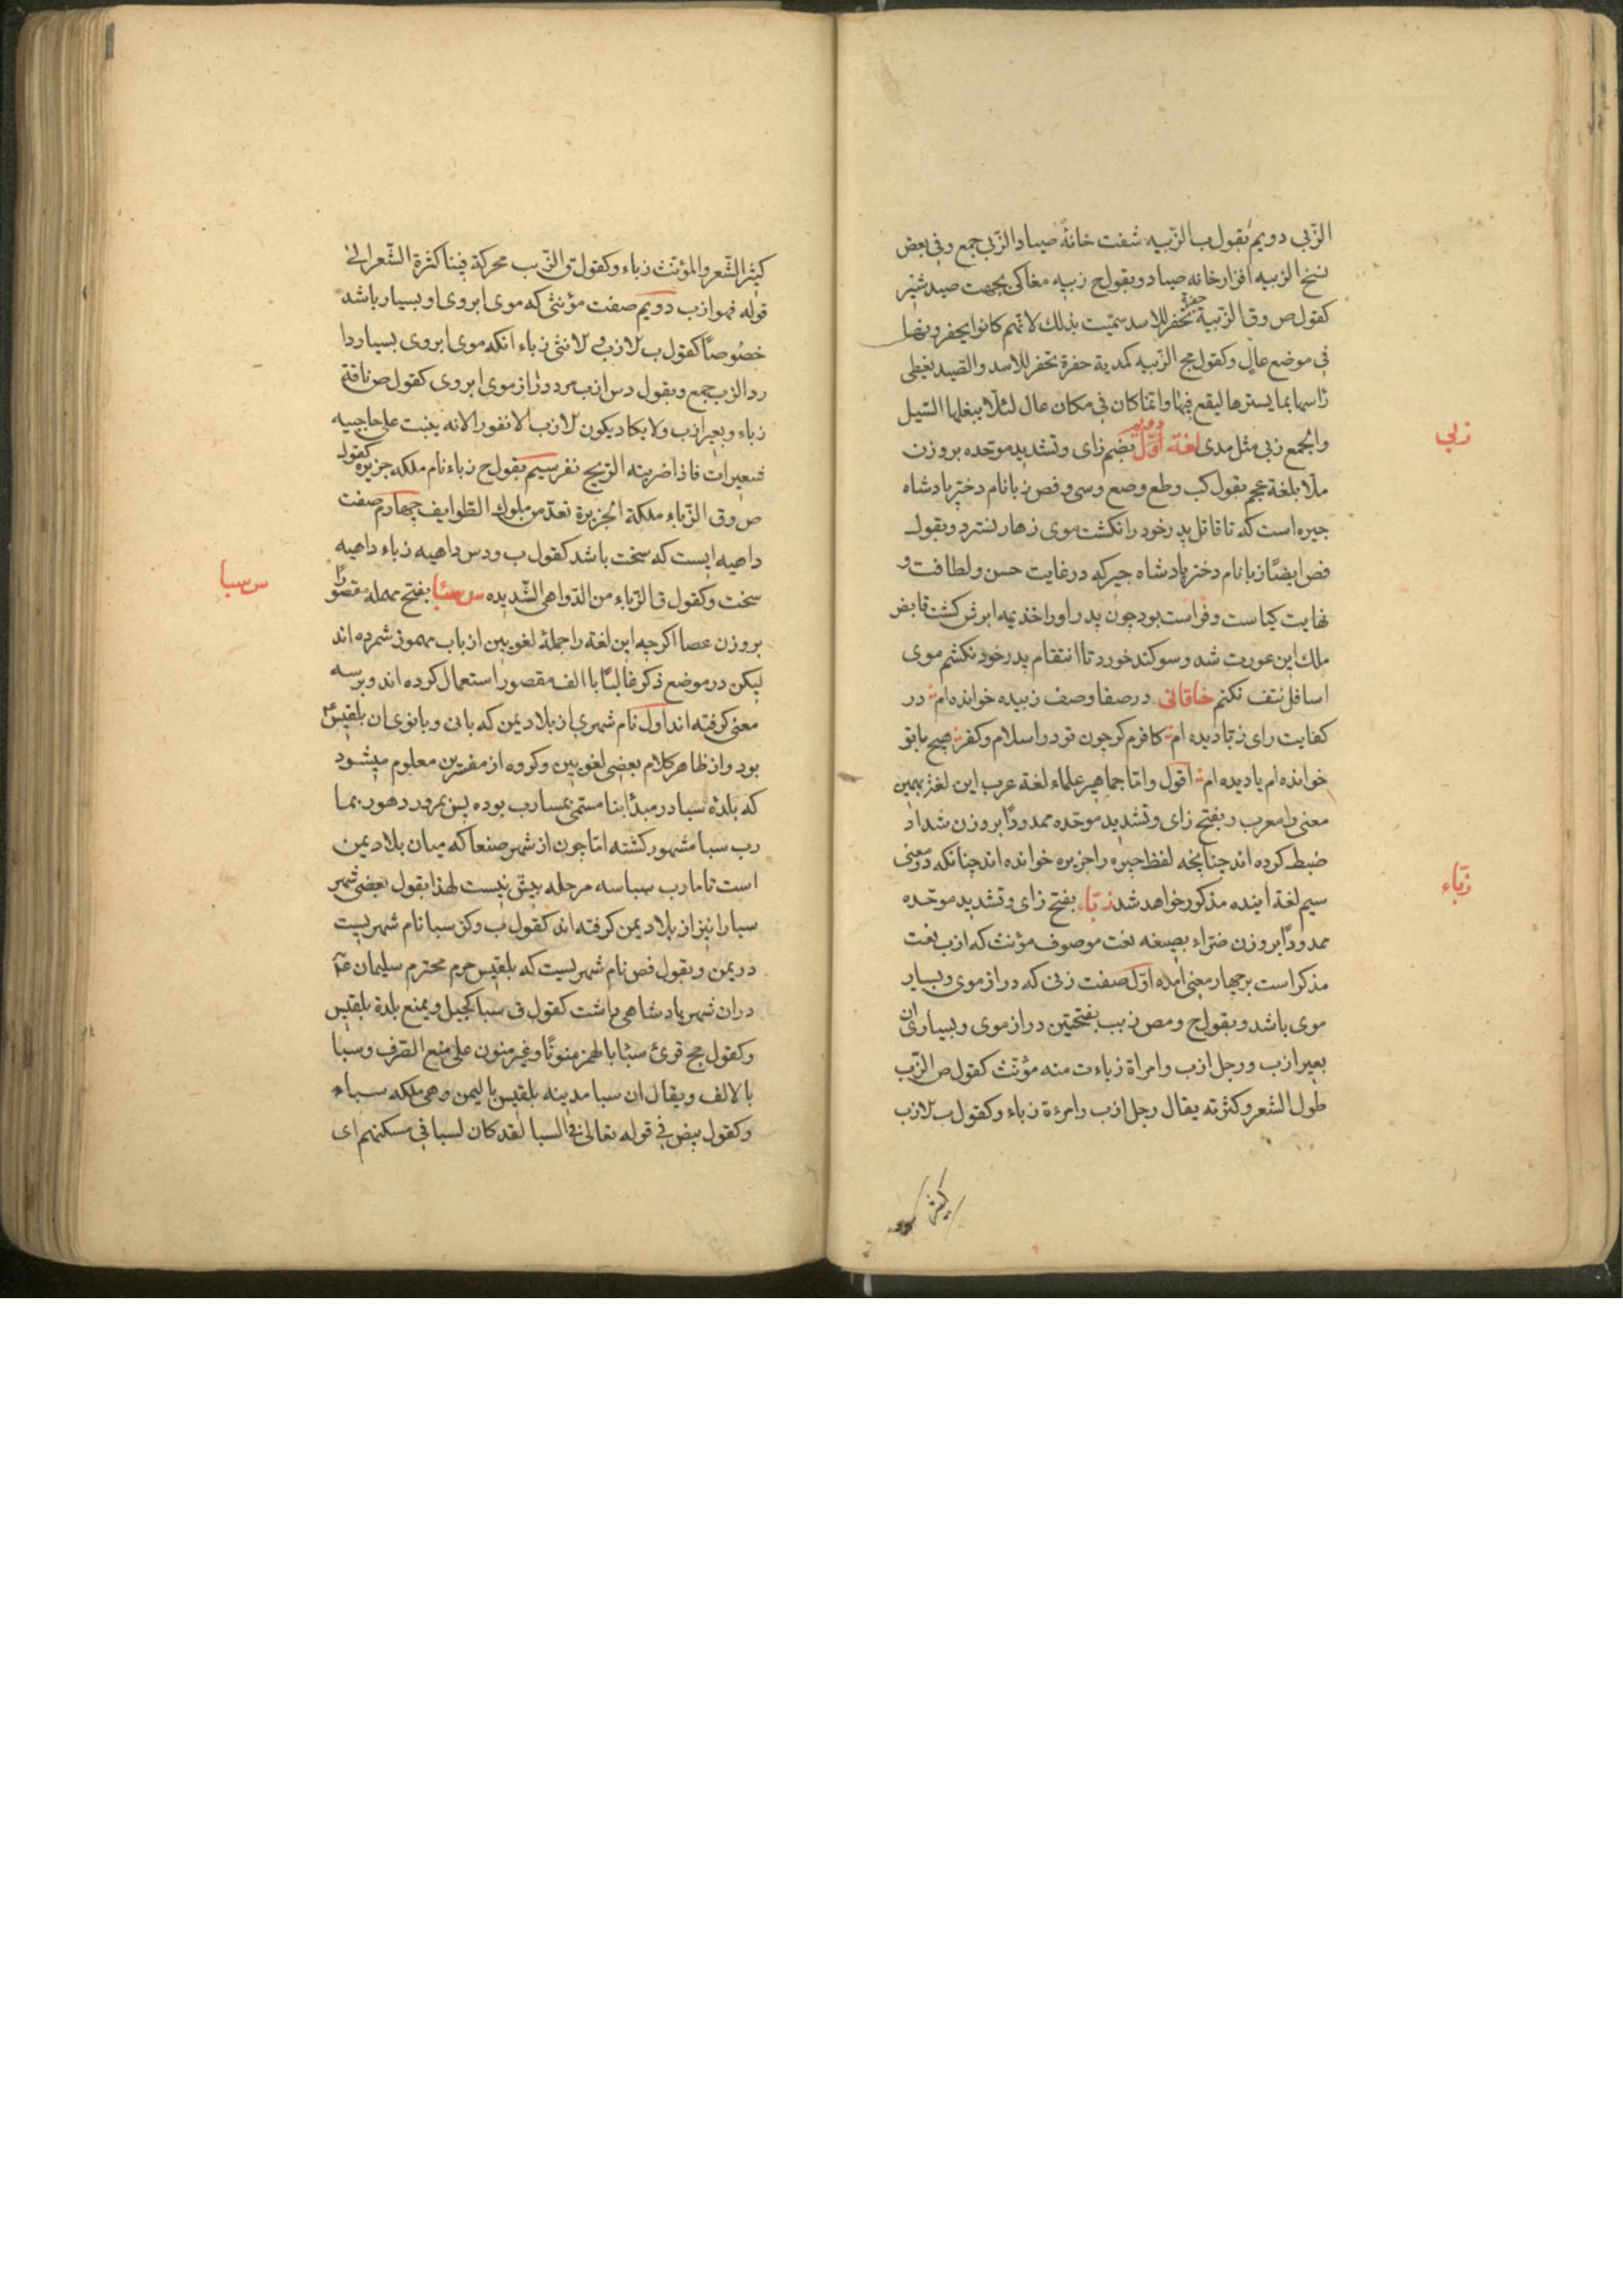 الزّبی دویم بقول ب الزّبیه شفت خانهٔ صیاد الزّبی جمع و فی بعض
نسخ الزبیه افزار خانه صیاد و بقول ح زبیه مغاکی بجهت صید شیر
کقول ص و ق الزّبیة حفرة تحفر للاسد سمّیت بذلک لانّهم کانوا یحفرونها
فی موضع عال و کقول مج الزّبیه کمدیة حفرة تحفر للاسد و الصید یغطی
رأسها بما یسترها لیقع فیها و انّما کان فی مکان عال لئلّا یبغلها السّیل
و الجمع زبی مثل مدی لغة اوّل دویم بضم زای و تشدید موحّده بر وزن
زبی
ملّا بلغة عجم بقول کب و طع و صع و سی و فص زبا نام دختر پادشاه
جیره است که تا قاتل پدر خود را نکشت موی زهار نسترد و بقول
فص ایضًا زبا نام دختر پادشاه جیرکه در غایت حسن و لطافت و
نهایت کیاست و فراست بود چون پدر او را خذیمه ابرش کشت قابض
ملک این عورت شد و سوکند خورد تا انتقام پدر خود نکشم موی
اسافل نتف نکنم خاقانی در صفا وصف زبیده خوانده‌ام در
کفایت رای زبّا دیده‌ام کافرم کر چون تو در اسلام و کفر هیچ بانو
خوانده‌ام یا دیده‌ام اقول و امّا جماهیر علماء لغة عرب این لغة بهمین
معنی را معرب و بفتح زای و تشدید موحّده ممدودًا بر وزن شداد
ضبط کرده‌اند چنانچه لفظ جیره را جزیره خوانده‌اند چنانکه در معنی
سیم لغة اینده مذکور خواهد شد زبّاء بفتح زای و تشدید موحّده
زبّاء
ممدودًا بر وزن ضرّاء بصیغه نعت موصوف مؤنث که ازب نعت
مذکر است بر چهار معنی امده اوّل صفت زنی که دراز موی و بسیار
موی باشد و بقول ح و مص زبب بفتحتین دراز موی و بسیاری ان
بعیر ازب و رجل ازب و امراة زباء ت منه مؤنث کقول ص الزّبب
طول الشعر و کثرته یقال رجل ازب و امرءة زباء و کقول ب لازب
کثیر
کثیر الشّعر و المؤنّث زباء و کقول ق الزّبب محرکة فینا کثرة الشّعر الی
قوله فهو ازب دویم صفت مؤنثی که موی ابروی او بسیار باشد
خصوصًا کقول ب لازب و لانثی زباء انکه موی ابروی بسیار دا
رد الزب جمع و بقول دس ازب مرد دراز موی ابروی کقول ص ناقة
زباء و بعیر ازب و لا یکاد یکون لازب الا نفورا لانه ینبت علی حاجبیه
شعیرات فاذا ضربته الرّیح نفر سیم بقول ح زباء نام ملکه جزیره کقول
ص و ق الزّباء ملکة الجزیرة تعدّ من ملوک الطوایف چهارم صفت
داهیه ایست که سخت باشد کقول ب و دس داهیه زباء داهیه
سخت و کقول ق الزّباء من الدّواهی الشّدیده س سبا بفتح مهمله مقصورًا
س سبا
بر وزن عصا اکر چه این لغة را جملهٔ لغویین از باب مهموز شمرده‌اند
لیکن در موضع ذکر غالبًا با الف مقصور استعمال کرده‌اند و بر سه
معنی کرفته‌اند اول نام شهری از بلاد یمن که بانی و بانوی ان بلقیس
بود و از ظاهر کلام بعضی لغویین و کروه از مفسّرین معلوم میشود
که بلدهٔ سبا در مبدأ بنا مسمّی بمسارب بوده پس بمرور دهور بما
رب سبا مشهور کشته امّا چون از شهر صنعا که میان بلاد یمن
است تا مارب سبا سه مرحله بیش نیست لهذا بقول بعضی شهر
سبا را نیز از بلاد یمن کرفته‌اند کقول ب و کز سبا نام شهریست
در یمن و بقول فص نام شهریست که بلقیس حرم محترم سلیمان ع
دران شهر پادشاهی داشت کقول ق سبا کجبل و یمنع بلدة بلقیس
و کقول مج قرئ سبئا بالهمز منونًا و غیر منون علی منع الصّرف و سبا
بالالف و یقال ان سبا مدینه بلقیس بالیمن و هی ملکه سباء
و کقول بیض فی قوله تعالی فی السبا لقد کان لسبا فی مسکنهم ای